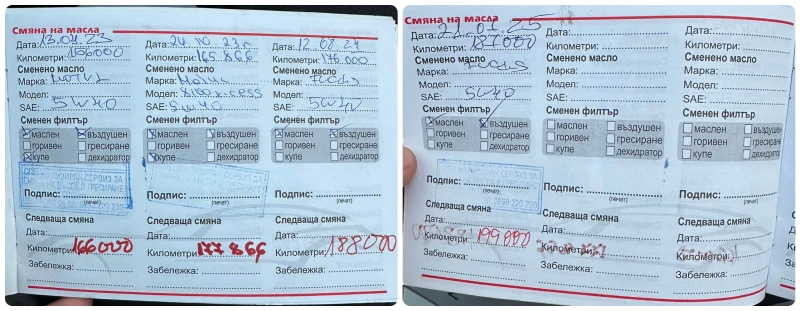 Смяна на масла
Дата: 13.04.23
Километри: 156000
Сменено масло
Марка: MOTUL
Модел:
SAE: 5W40
Сменен филтър
маслен въздушен
горивен гресиране
купе дехидратор
Подпис:
(печат)
Следваща смяна
Дата:
Километри: 166000
Забележка:
Дата: 24.10.23г
Километри: 165 866
Сменено масло
Марка: Motul
Модел: 8100 X-cess
SAE: 5w40
Сменен филтър
маслен въздушен
горивен гресиране
купе дехидратор
Подпис:
(печат)
Следваща смяна
Дата:
Километри: 177866
Забележка:
Дата: 12.08.24
Километри: 176000
Сменено масло
Марка:
Модел:
SAE: 5W40
Сменен филтър
маслен въздушен
горивен гресиране
купе дехидратор
Подпис:
(печат)
Следваща смяна
Дата:
Километри: 188000
Забележка:
Смяна на масла
Дата: 21.01.25
Километри: 187000
Сменено масло
Марка:
Модел:
SAE: 5W40
Сменен филтър
маслен въздушен
горивен гресиране
купе дехидратор
Подпис:
(печат)
0899 220 220
Следваща смяна
Дата:
Километри: 199000
Забележка:
Дата:
Километри:
Сменено масло
Марка:
Модел:
SAE:
Сменен филтър
маслен въздушен
горивен гресиране
купе дехидратор
Подпис:
(печат)
Следваща смяна
Дата:
Километри:
Забележка:
Дата:
Километри:
Сменено масло
Марка:
Модел:
SAE:
Сменен филтър
маслен въздушен
горивен гресиране
купе дехидратор
Подпис:
(печат)
Следваща смяна
Дата:
Километри:
Забележка: